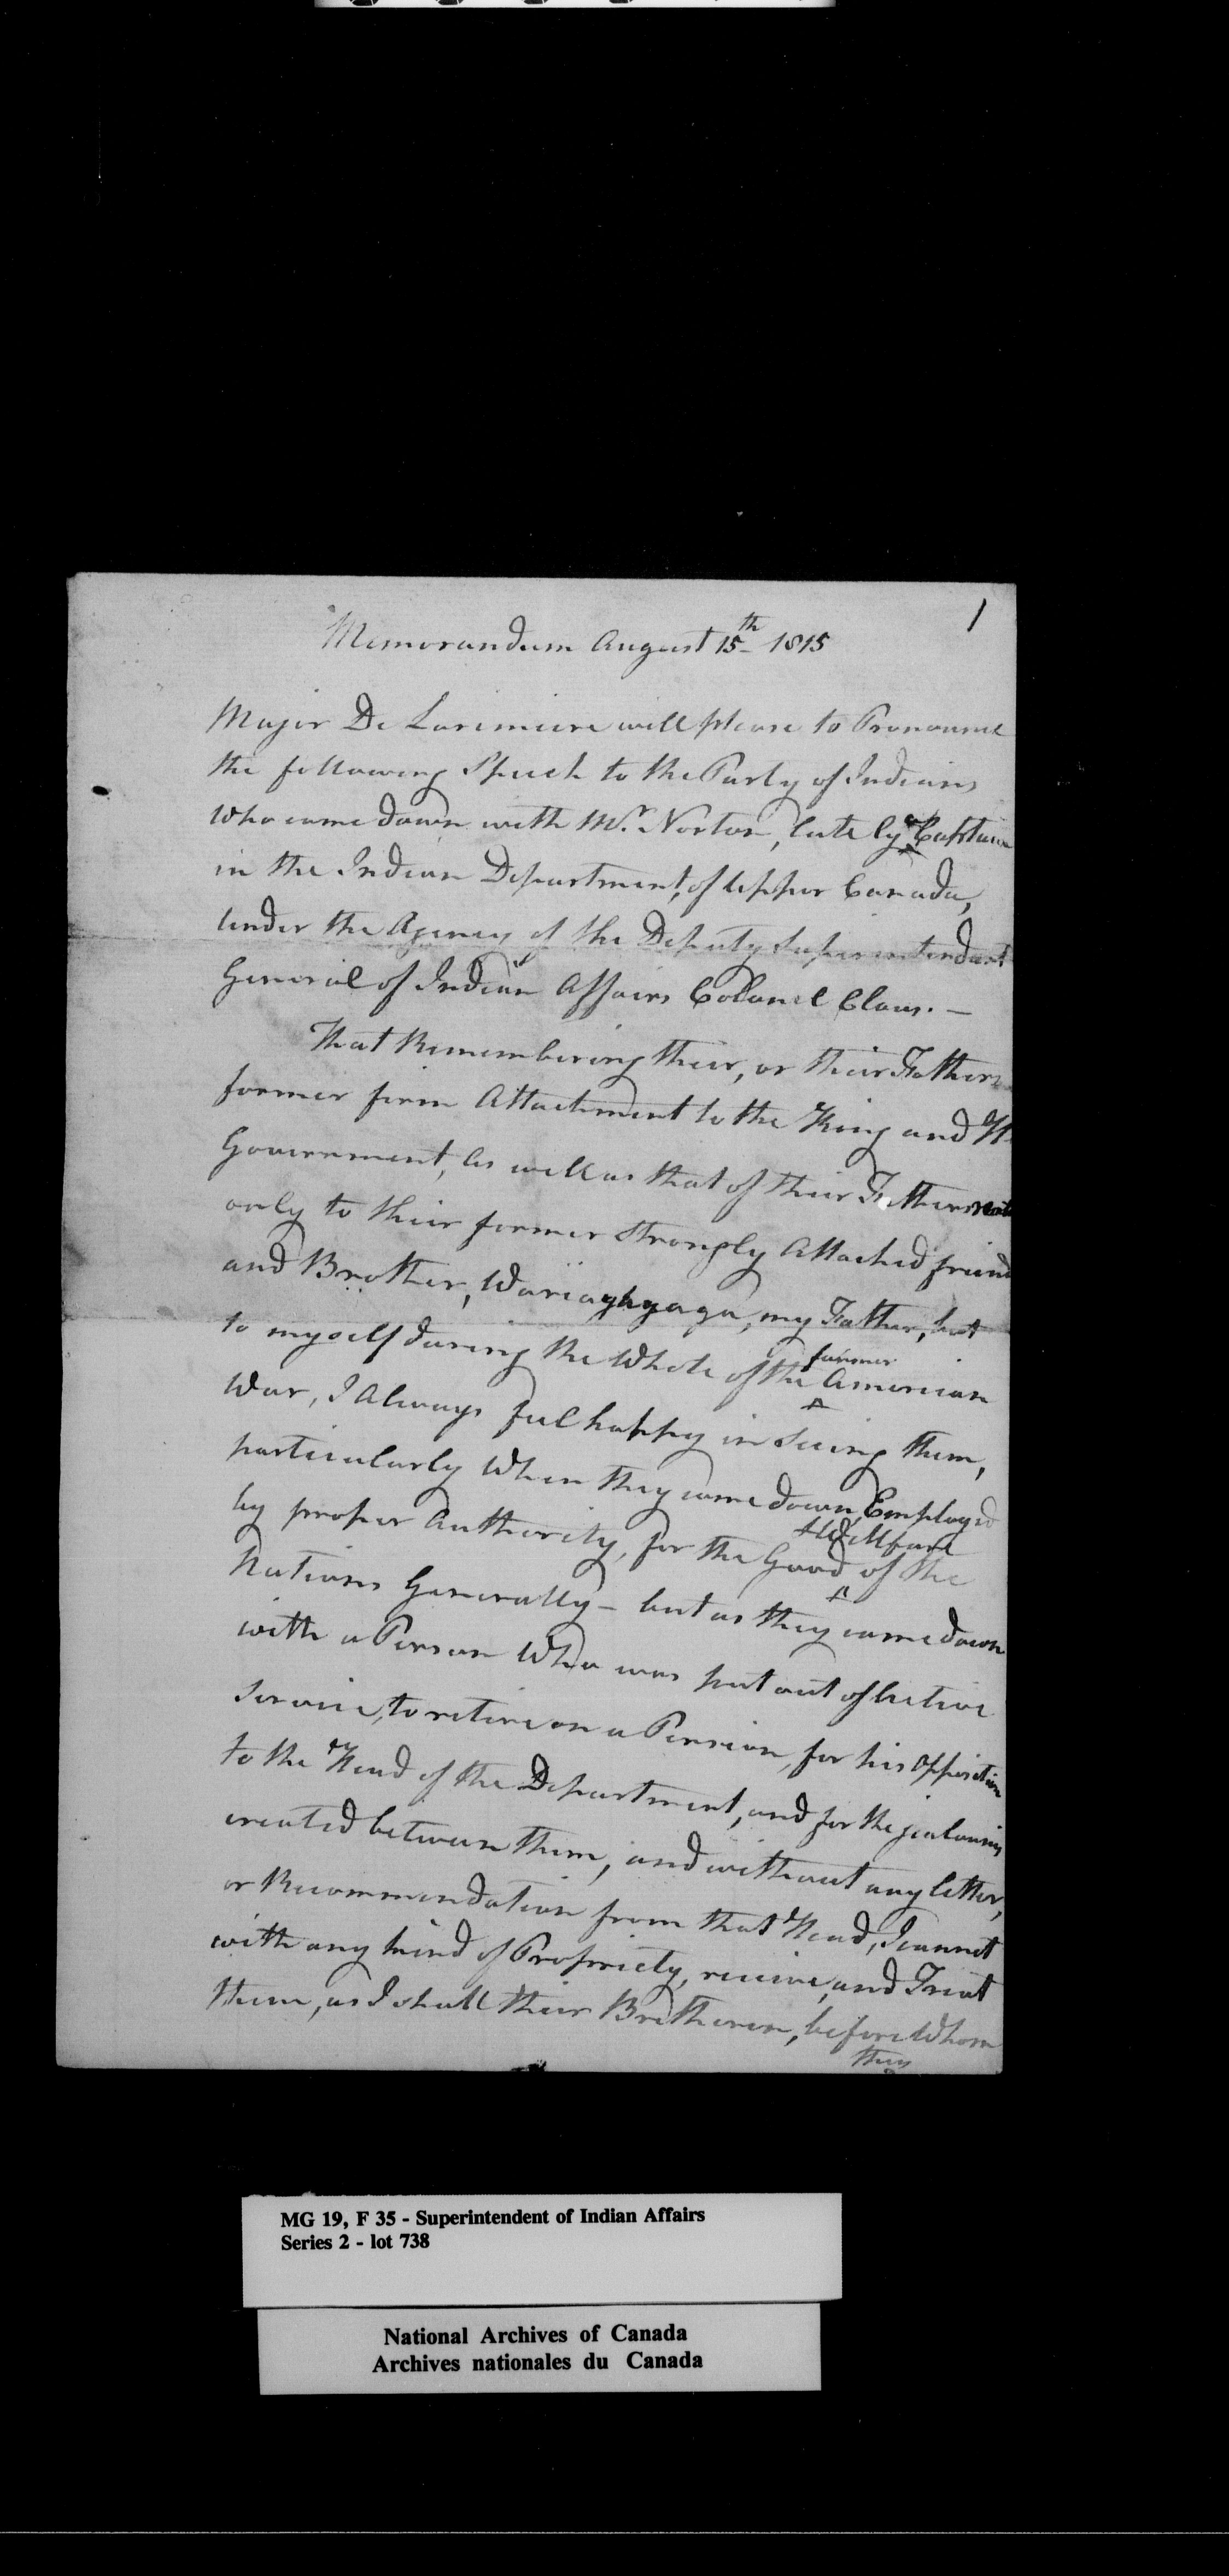 1
Memorandum August 15th 1815
Major De Lorimiere will please to Pronounce
the following Speech to the Party of Indians
who came down with Mr. Norton, lately a Captain
in the Indian Department, of Upper Canada,
under the Agency of the Deputy Superintendant
General of Indian Affairs Colonel Claus. —
That Remembering their, or their Fathers
former firm Attachment to the King and H
Government, as well as that of their Fathers not
only to their former strongly Attached friend
and Brother, Wariaghyaga, my Father, but
to myself during the Whole of the former American
War, I Always feel happy in Seeing them,
particularly When they come down, Employed
by proper Authority, for the Good & Wellfare of the
Nations Generally — but as they came down
with a Person Who was put out of active
Service, to retire on a Pension, for his opposition
to the Head of the Department, and for the jealousies
created between them, and without any letter,
or Recommendation from that Head, I cannot
with any kind of Propriety, receive, and Treat
them, as I shall their Bretheren, before Whom
they
MG 19, F 35 - Superintendent of Indian Affairs
Series 2 - lot 738
National Archives of Canada
Archives nationales du Canada